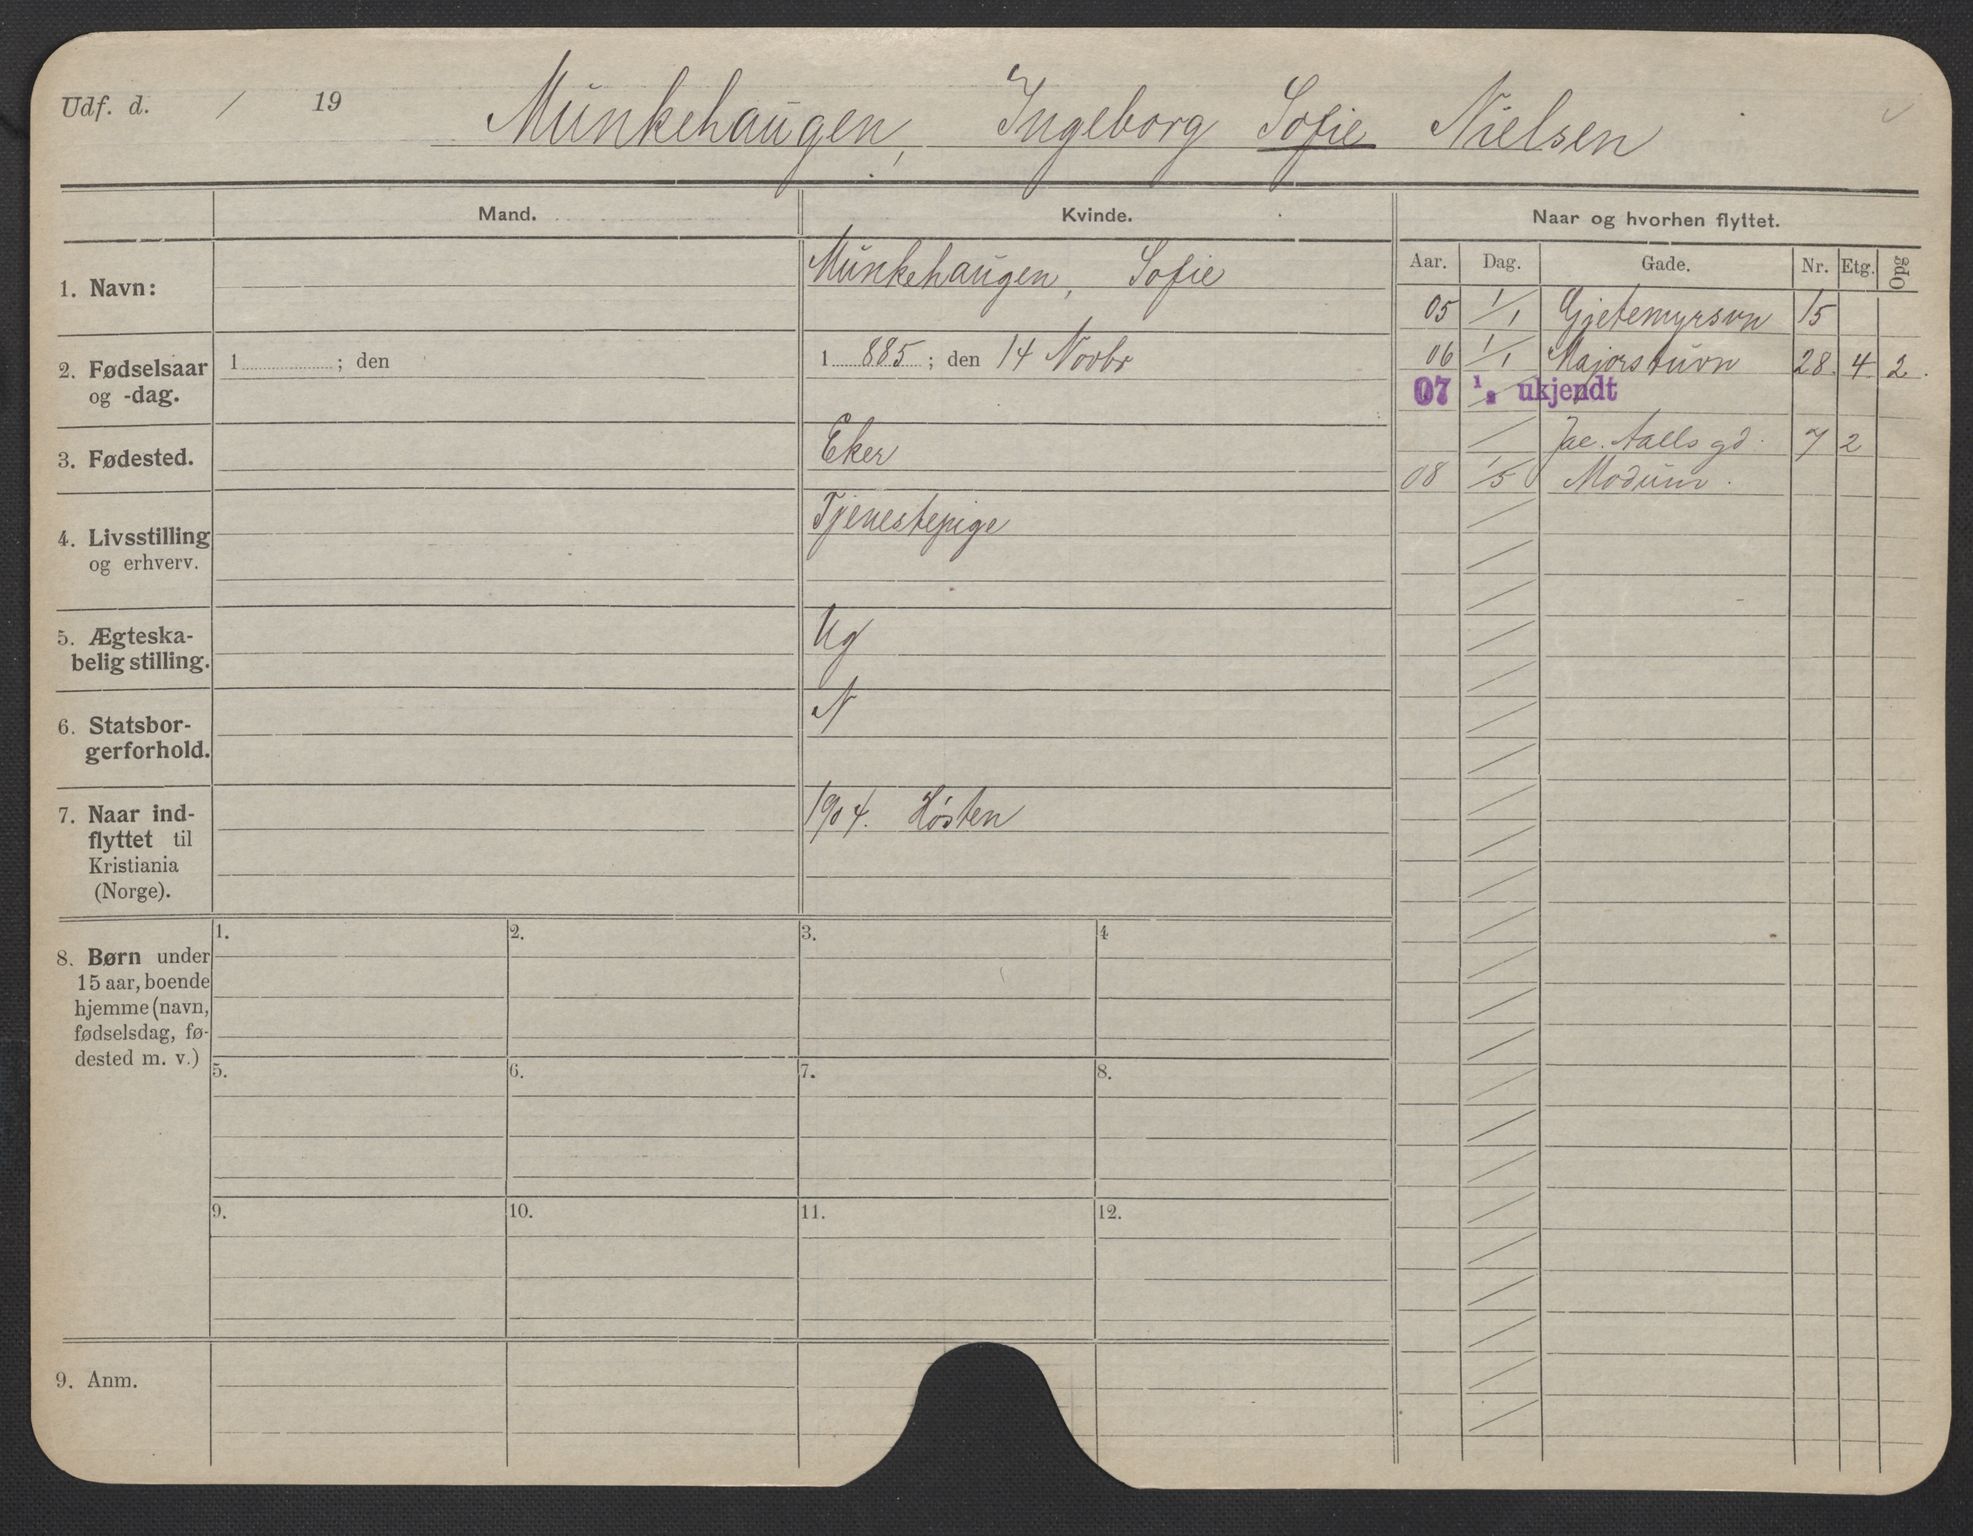 Udf. d. / 19
Munkehaugen, Ingeborg Sofie Nielsen
Mand. Kvinde. Naar og hvorhen flyttet.
Aar. Dag. Gade. Nr. Etg. Opg
1. Navn: Munkehaugen, Sofie
05 1/1 Gjetemyrsvn 15
2. Fødselsaar 1 ; den 1 885 ; den 14 Novbr
og -dag.
06 1/1 Majorstuvn 28. 4 2.
07 1/2 ukjendt
Jac. Aalls gd. 7 2
08 1/5 Modum.
3. Fødested. Eker
4. Livsstilling Tjenestepige
og erhverv.
5. Ægteska- Ug
belig stilling.
6. Statsbor- N
gerforhold.
7. Naar ind- 1904. Høsten
flyttet til
Kristiania
(Norge).
8. Børn under
15 aar, boende
hjemme (navn,
fødselsdag, fø-
dested m. v.)
1. 2. 3. 4
5. 6. 7. 8.
9. 10. 11. 12.
9. Anm.